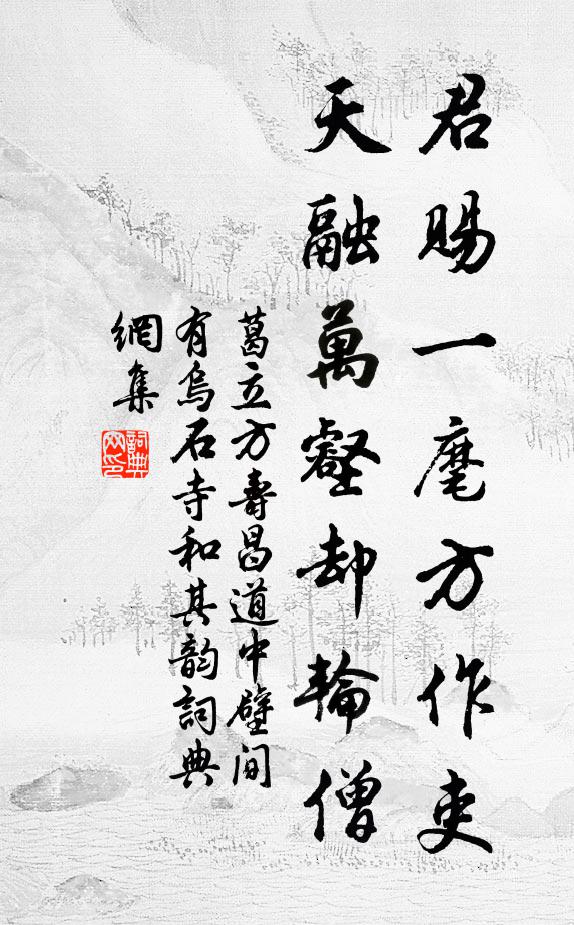 君賜一麾方作吏
天融萬壑却輪僧
葛立方壽昌道中壁间
有烏石寺和其韵詞典
網集
詞典
网印